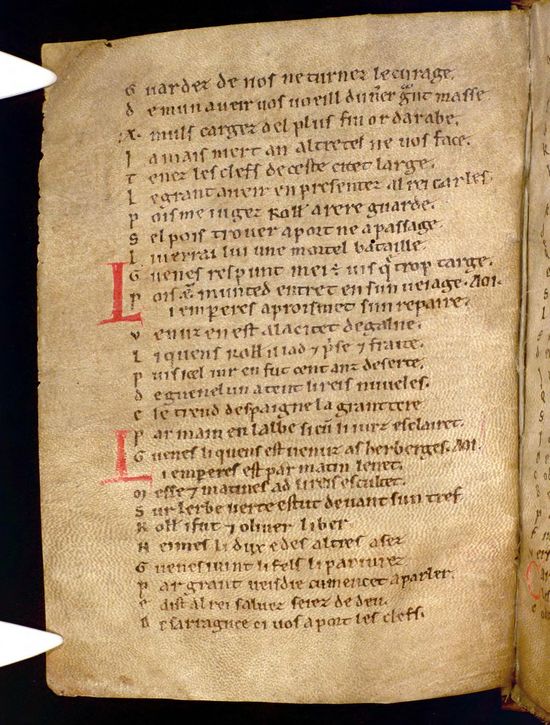 Guardez de nos ne turnez le curage.
De mun aveir vos voeill dun̄er gᵃnt masse
.X. muls cargez del plus fin or darabe.
Jamais niert an altretel ne vos face.
Tenez les clefs de ceste citet large.
Le grant aveir en presentez al rei carles.
Pois me iugez Roll̄ a rere guarde.
Sel pois trover a port ne a passage.
Liverrai lui une mortel bataille.
Guenes respunt mei ē vis q̄ trop targe.
Pois ē munted entret en sun veiage. AOI.
Li empereres aproismet sun repaire.
Venuz en est a la citet de galne.
Li quens Roll̄ il lad ⁊ p̄se ⁊ fraite.
Puis icel iur en fut cent anz deserte.
De guenelun atent li reis nuveles.
E le treud despaigne la grant tere
Par main en lalbe si cū li iurz esclairet.
Guenes li quens est venuz as herberges. AOI.
Li empereres est par matin levet.
Messe ⁊ matines ad li reis escultet.
Sur lerbe verte estut devant sun tref
Roll̄ i fut ⁊ oliver li ber
Neimes li dux e des altres asez
Guenes i vint li fels li pariurez
Par grant veisdie cumencet a parler.
E dist al rei salvez seiez de deu.
De sarraguce ci vos aport les clefs.